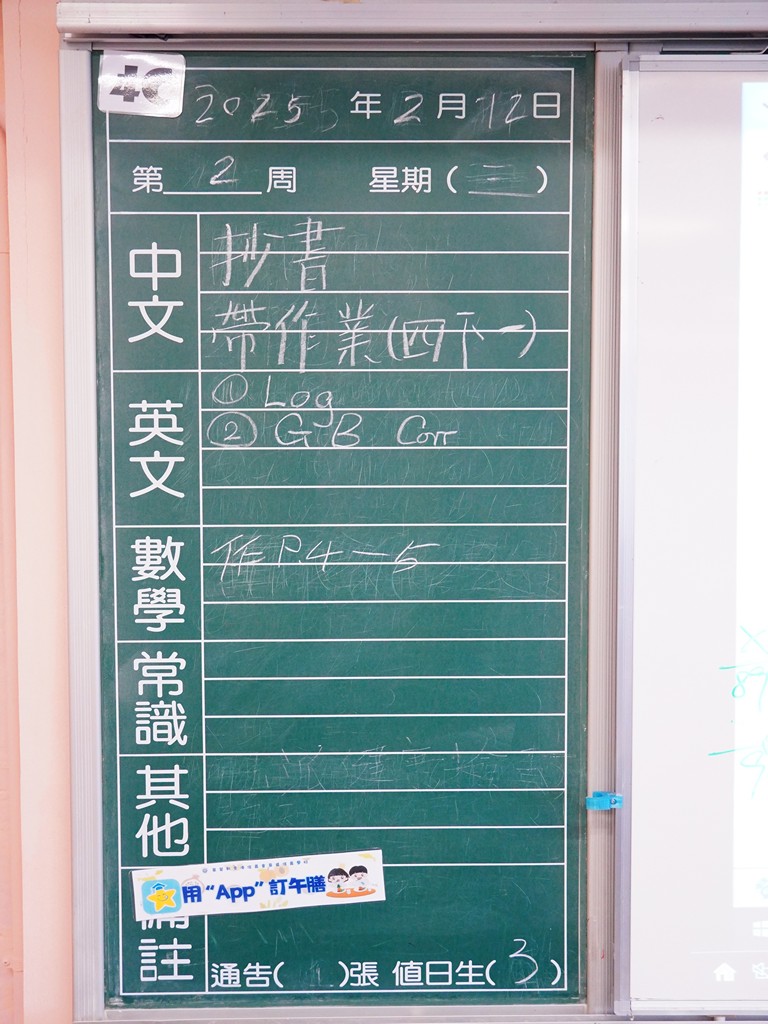 4C
2025年2月12日
第2周 星期(三)
中文
抄書
帶作業(四下一)
英文
① Log
② GB Corr
數學
作P.4-5
常識
其他
用“App”訂午膳
備註
通告( )張 值日生(3)